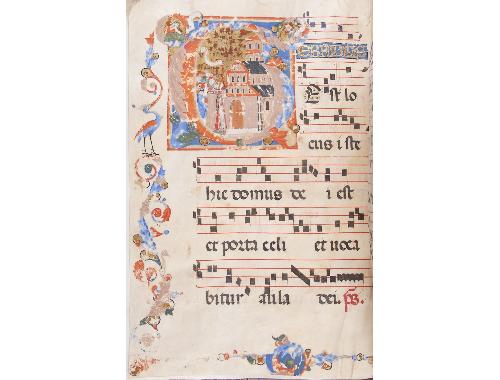 Est lo
cus iste
hic domus de i est
et porta celi et uoca
bitur aula dei. ps.